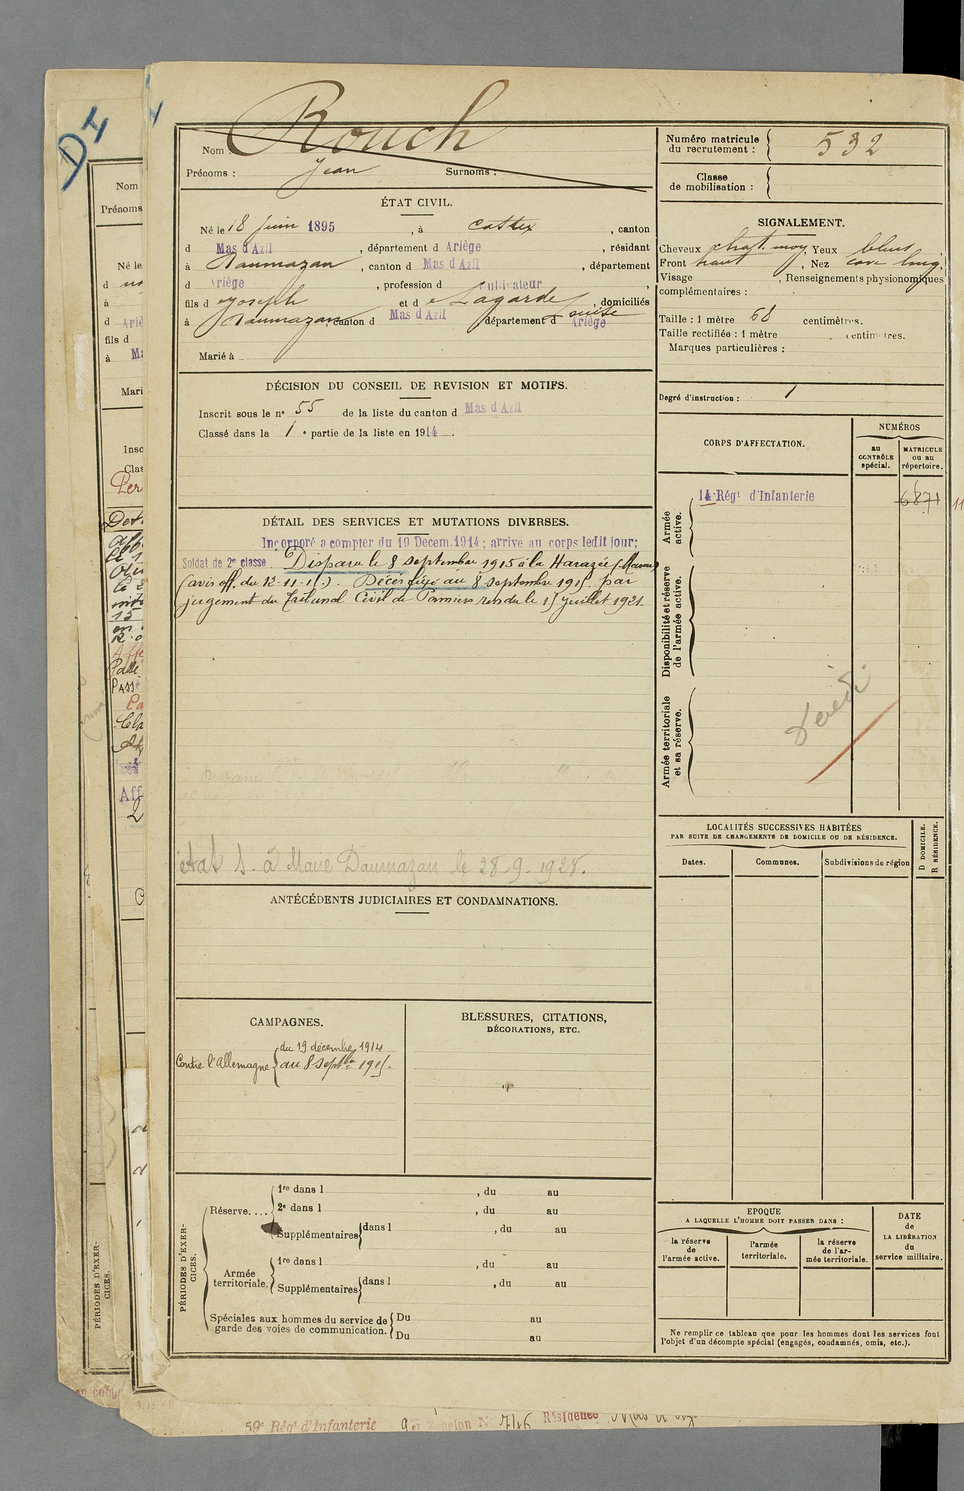 D4
Rouch
Nom :
Prénoms : Jean Surnoms :
ÉTAT CIVIL.
Né le 18 Juin 1895, à Castex, canton
d Mas d'Azil, département d Ariège, résidant
à Daumazan, canton d Mas d'Azil, département
d Ariège, profession d cultivateur,
fils d e Joseph et d e Lagarde Louise, domiciliés
à Daumazan, canton d Mas d'Azil département d Ariège
Marié à
DÉCISION DU CONSEIL DE REVISION ET MOTIFS.
Inscrit sous le n° 55 de la liste du canton d Mas d'Azil
Classé dans la 1 e partie de la liste en 1914.
DÉTAIL DES SERVICES ET MUTATIONS DIVERSES.
Incorporé a compter du 19 Décem. 1914 ; arrive au corps ledit jour ;
Soldat de 2e classe. Disparu le 8 septembre 1915 à la Harazée (Marne)
(avis off. du 12-11-15). Décès fixé au 8 septembre 1915 par
jugement du Tribunal Civil de Pamiers rendu le 15 juillet 1921.
S. à Marie Daumazan le 28-9-1928.
ANTÉCÉDENTS JUDICIAIRES ET CONDAMNATIONS.
CAMPAGNES.
Contre l'Allemagne { du 19 décembre 1914
au 8 Septbre 1915.
BLESSURES, CITATIONS,
DÉCORATIONS, ETC.
PÉRIODES D'EXERCICES.
Réserve....
1re dans l , du au
2e dans l , du au
Supplémentaires dans l , du au
Armée territoriale.
1re dans l , du au
Supplémentaires dans l , du au
Spéciales aux hommes du service de garde des voies de communication.
Du au
Du au
Numéro matricule
du recrutement : 532
Classe
de mobilisation :
SIGNALEMENT.
Cheveux chat. moy, Yeux bleus,
Front haut, Nez cave long,
Visage , Renseignements physionomiques
complémentaires :
Taille : 1 mètre 68 centimètres.
Taille rectifiée : 1 mètre , centimètres.
Marques particulières :
Degré d'instruction : 1
CORPS D'AFFECTATION.
NUMÉROS
au
CONTRÔLE
spécial.
MATRICULE
ou au
répertoire.
Armée
active.
14e Régt d'Infanterie
6871
11
Disponibilité et réserve
de l'armée active.
Armée territoriale
et sa réserve.
LOCALITÉS SUCCESSIVES HABITÉES
PAR SUITE DE CHANGEMENTS DE DOMICILE OU DE RÉSIDENCE.
Dates.
Communes.
Subdivisions de région
D DOMICILE.
R RÉSIDENCE.
EPOQUE
A LAQUELLE L'HOMME DOIT PASSER DANS :
la réserve
de
l'armée active.
l'armée
territoriale.
la réserve
de l'ar-
mée territoriale.
DATE
de
LA LIBÉRATION
du
service militaire.
Ne remplir ce tableau que pour les hommes dont les services font
l'objet d'un décompte spécial (engagés, condamnés, omis, etc.).
Nom
Prénoms
Né le
d
à
d Ariè
fils d
à Ma
Mari
Insc
Clas
PÉRIODES D'EXER-
CICES.
59e Régt d'Infanterie
Résidence